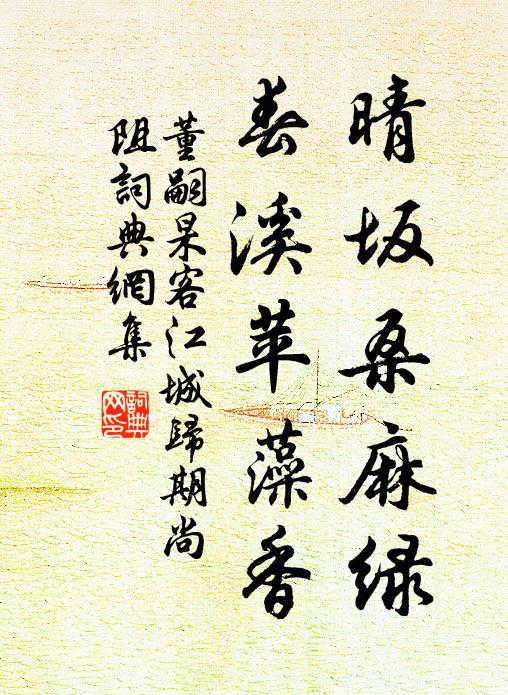 晴坂桑麻绿
春溪苹藻香
董嗣杲客江城歸期尚
阻詞典網集
詞典网印